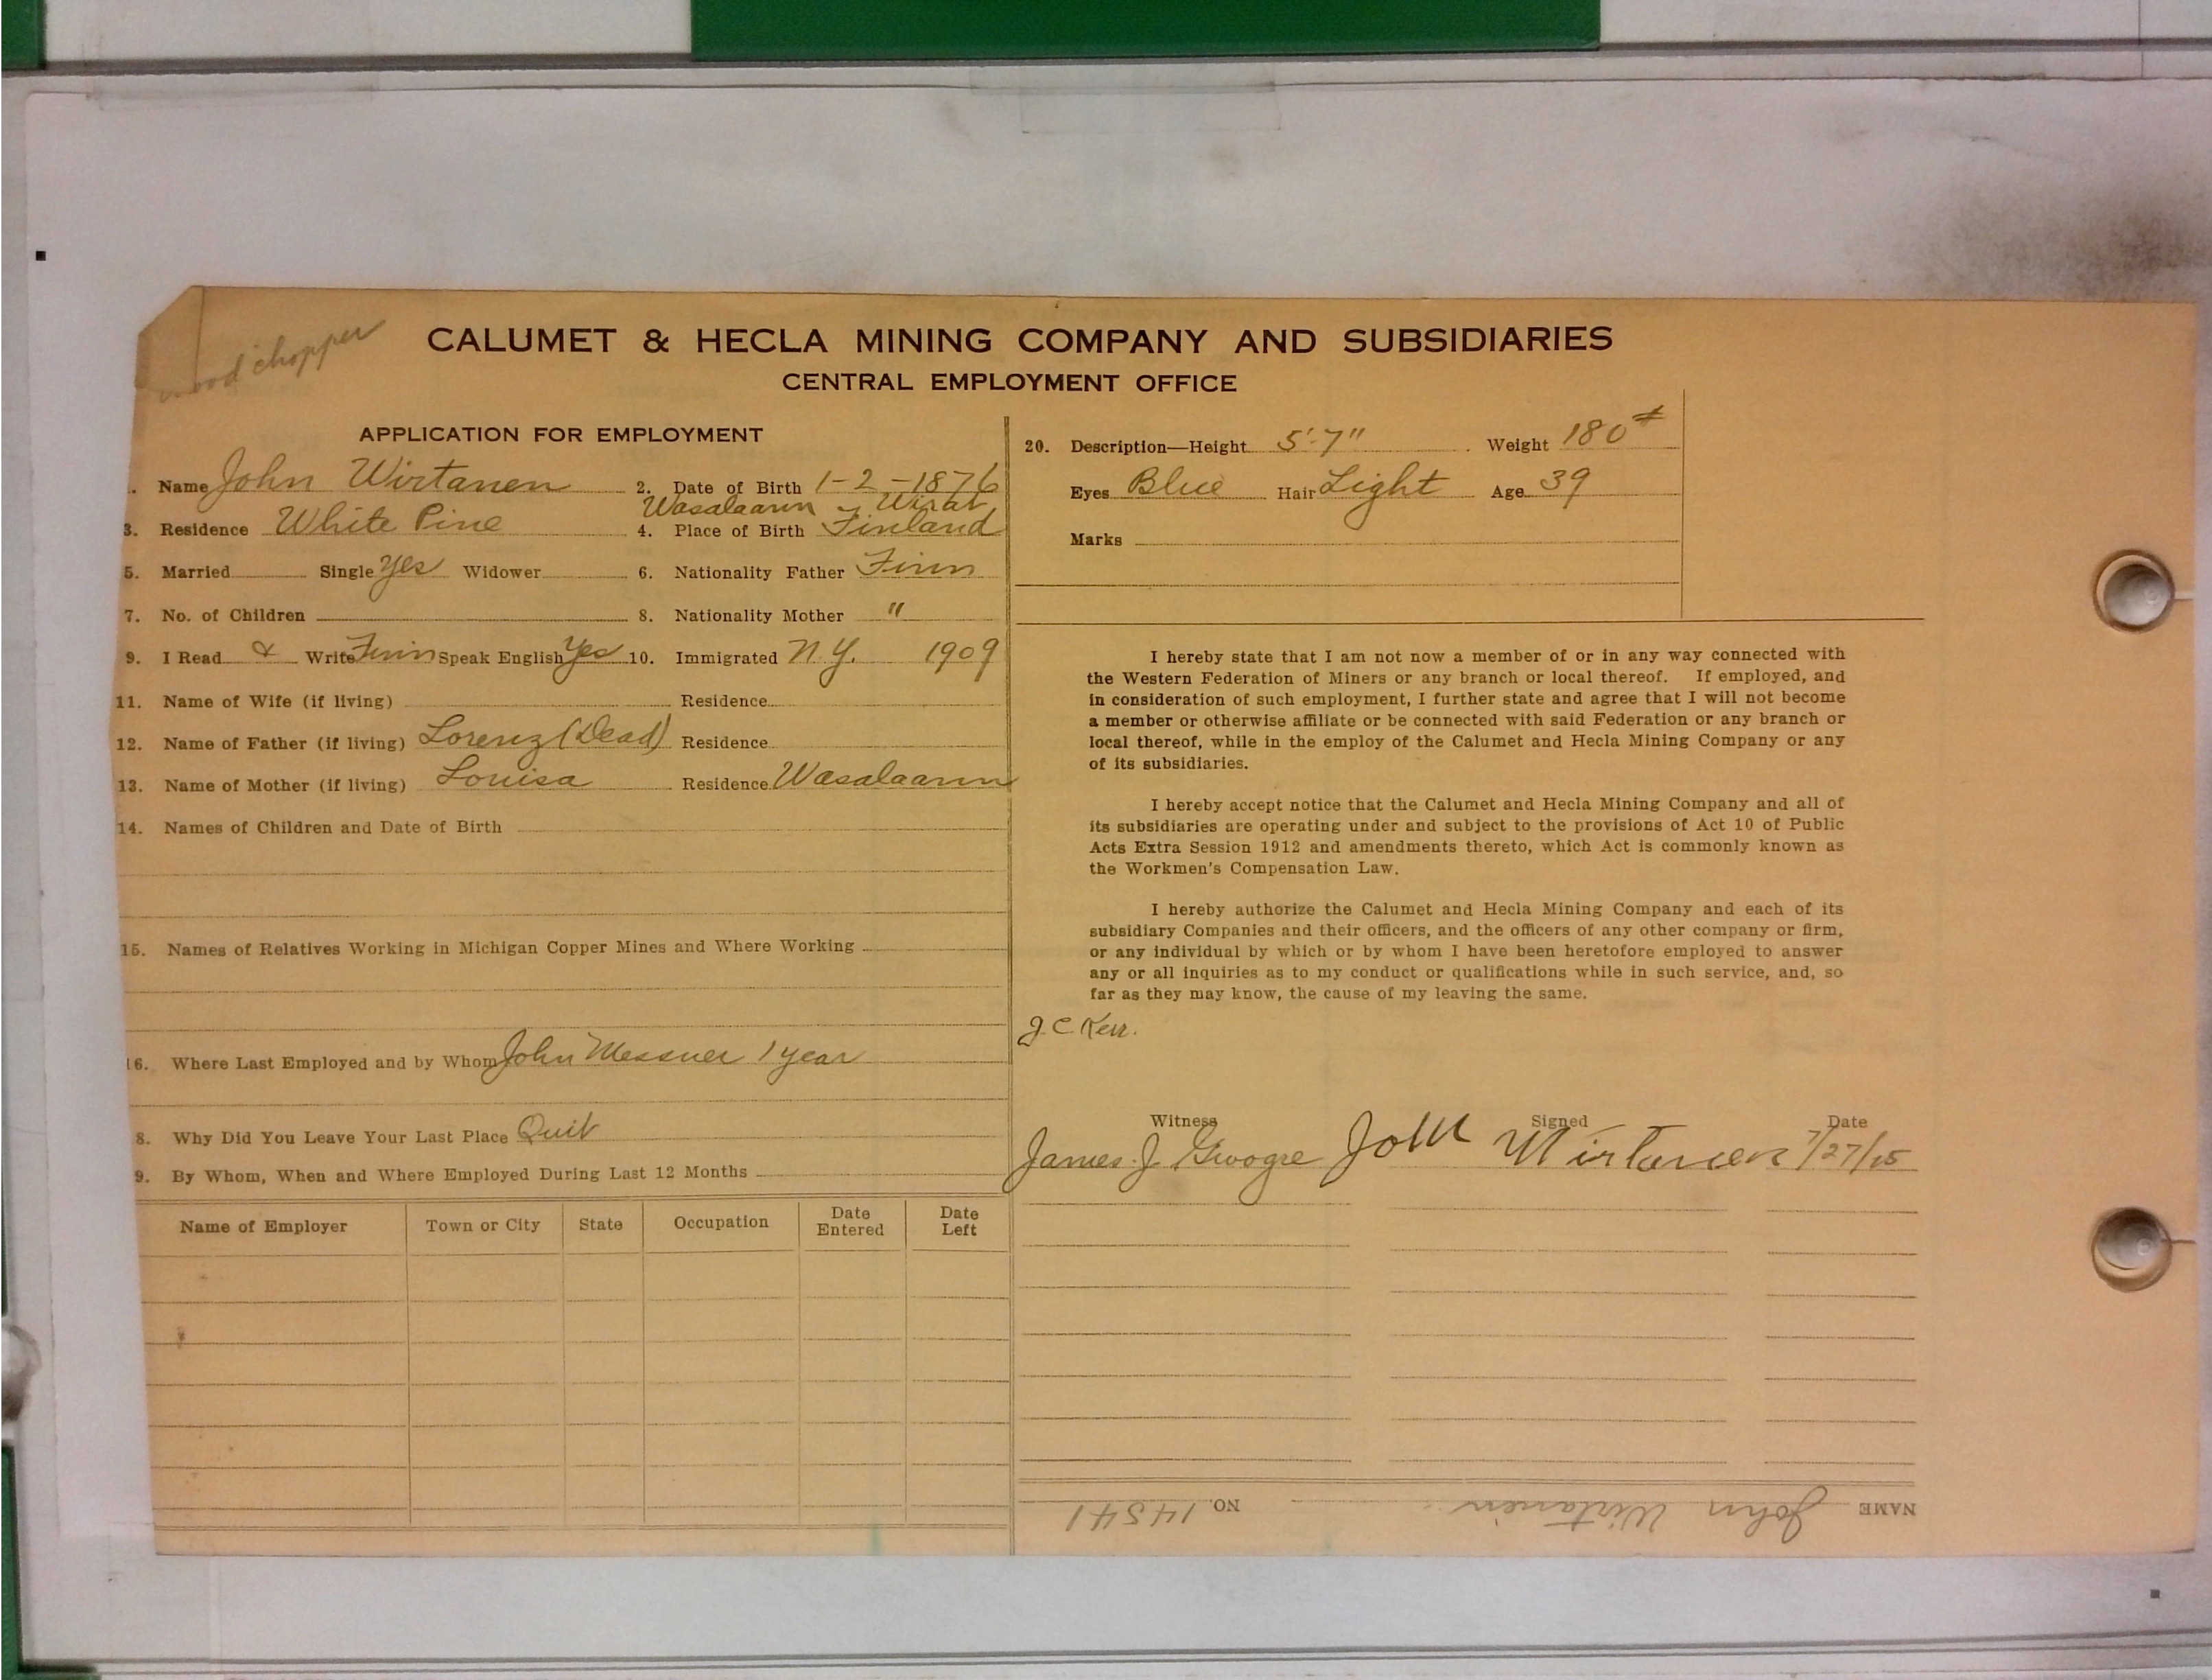 wood chopper
CALUMET & HECLA MINING COMPANY AND SUBSIDIARIES
CENTRAL EMPLOYMENT OFFICE
APPLICATION FOR EMPLOYMENT
1. Name John Wirtanen 2. Date of Birth 1-2-1876
Wasalaann Wirat
3. Residence White Pine 4. Place of Birth Finland
5. Married Single Yes Widower 6. Nationality Father Finn
7. No. of Children 8. Nationality Mother "
9. I Read & Write Finn Speak English Yes 10. Immigrated N.Y. 1909
11. Name of Wife (if living) Residence
12. Name of Father (if living) Lorenz (Dead) Residence
13. Name of Mother (if living) Louisa Residence Wasalaann
14. Names of Children and Date of Birth
15. Names of Relatives Working in Michigan Copper Mines and Where Working
16. Where Last Employed and by Whom John Messner 1 year
8. Why Did You Leave Your Last Place Quit
9. By Whom, When and Where Employed During Last 12 Months
Name of Employer Town or City State Occupation Date Entered Date Left
20. Description—Height 5'-7" Weight 180#
Eyes Blue Hair Light Age 39
Marks
I hereby state that I am not now a member of or in any way connected with
the Western Federation of Miners or any branch or local thereof. If employed, and
in consideration of such employment, I further state and agree that I will not become
a member or otherwise affiliate or be connected with said Federation or any branch or
local thereof, while in the employ of the Calumet and Hecla Mining Company or any
of its subsidiaries.
I hereby accept notice that the Calumet and Hecla Mining Company and all of
its subsidiaries are operating under and subject to the provisions of Act 10 of Public
Acts Extra Session 1912 and amendments thereto, which Act is commonly known as
the Workmen's Compensation Law.
I hereby authorize the Calumet and Hecla Mining Company and each of its
subsidiary Companies and their officers, and the officers of any other company or firm,
or any individual by which or by whom I have been heretofore employed to answer
any or all inquiries as to my conduct or qualifications while in such service, and, so
far as they may know, the cause of my leaving the same.
J. C. Kerr.
Witness Signed Date
James J John Wirtanen 7/27/15
NAME John Wirtanen NO. 14541